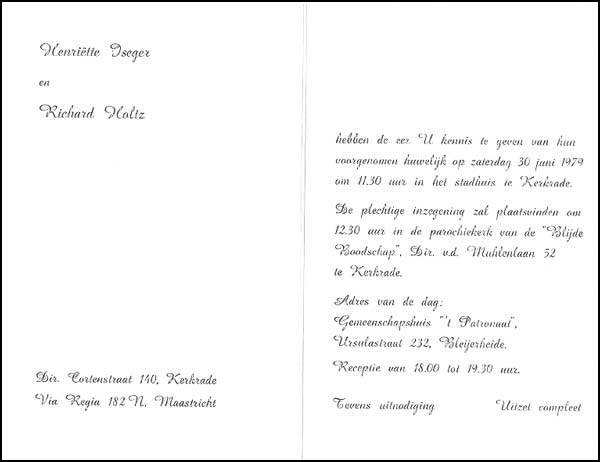 Henriëtte Iseger
en
Richard Holtz
Dir. Cortenstraat 140, Kerkrade
Via Regia 182 N, Maastricht
hebben de eer U kennis te geven van hun
voorgenomen huwelijk op zaterdag 30 juni 1979
om 11.30 uur in het stadhuis te Kerkrade.
De plechtige inzegening zal plaatsvinden om
12.30 uur in de parochiekerk van de "Blijde
Boodschap", Dir. v.d. Muhlenlaan 52
te Kerkrade.
Adres van de dag:
Gemeenschapshuis "'t Patronaat",
Ursulastraat 232, Bleijerheide.
Receptie van 18.00 tot 19.30 uur.
Tevens uitnodiging Uitzet compleet